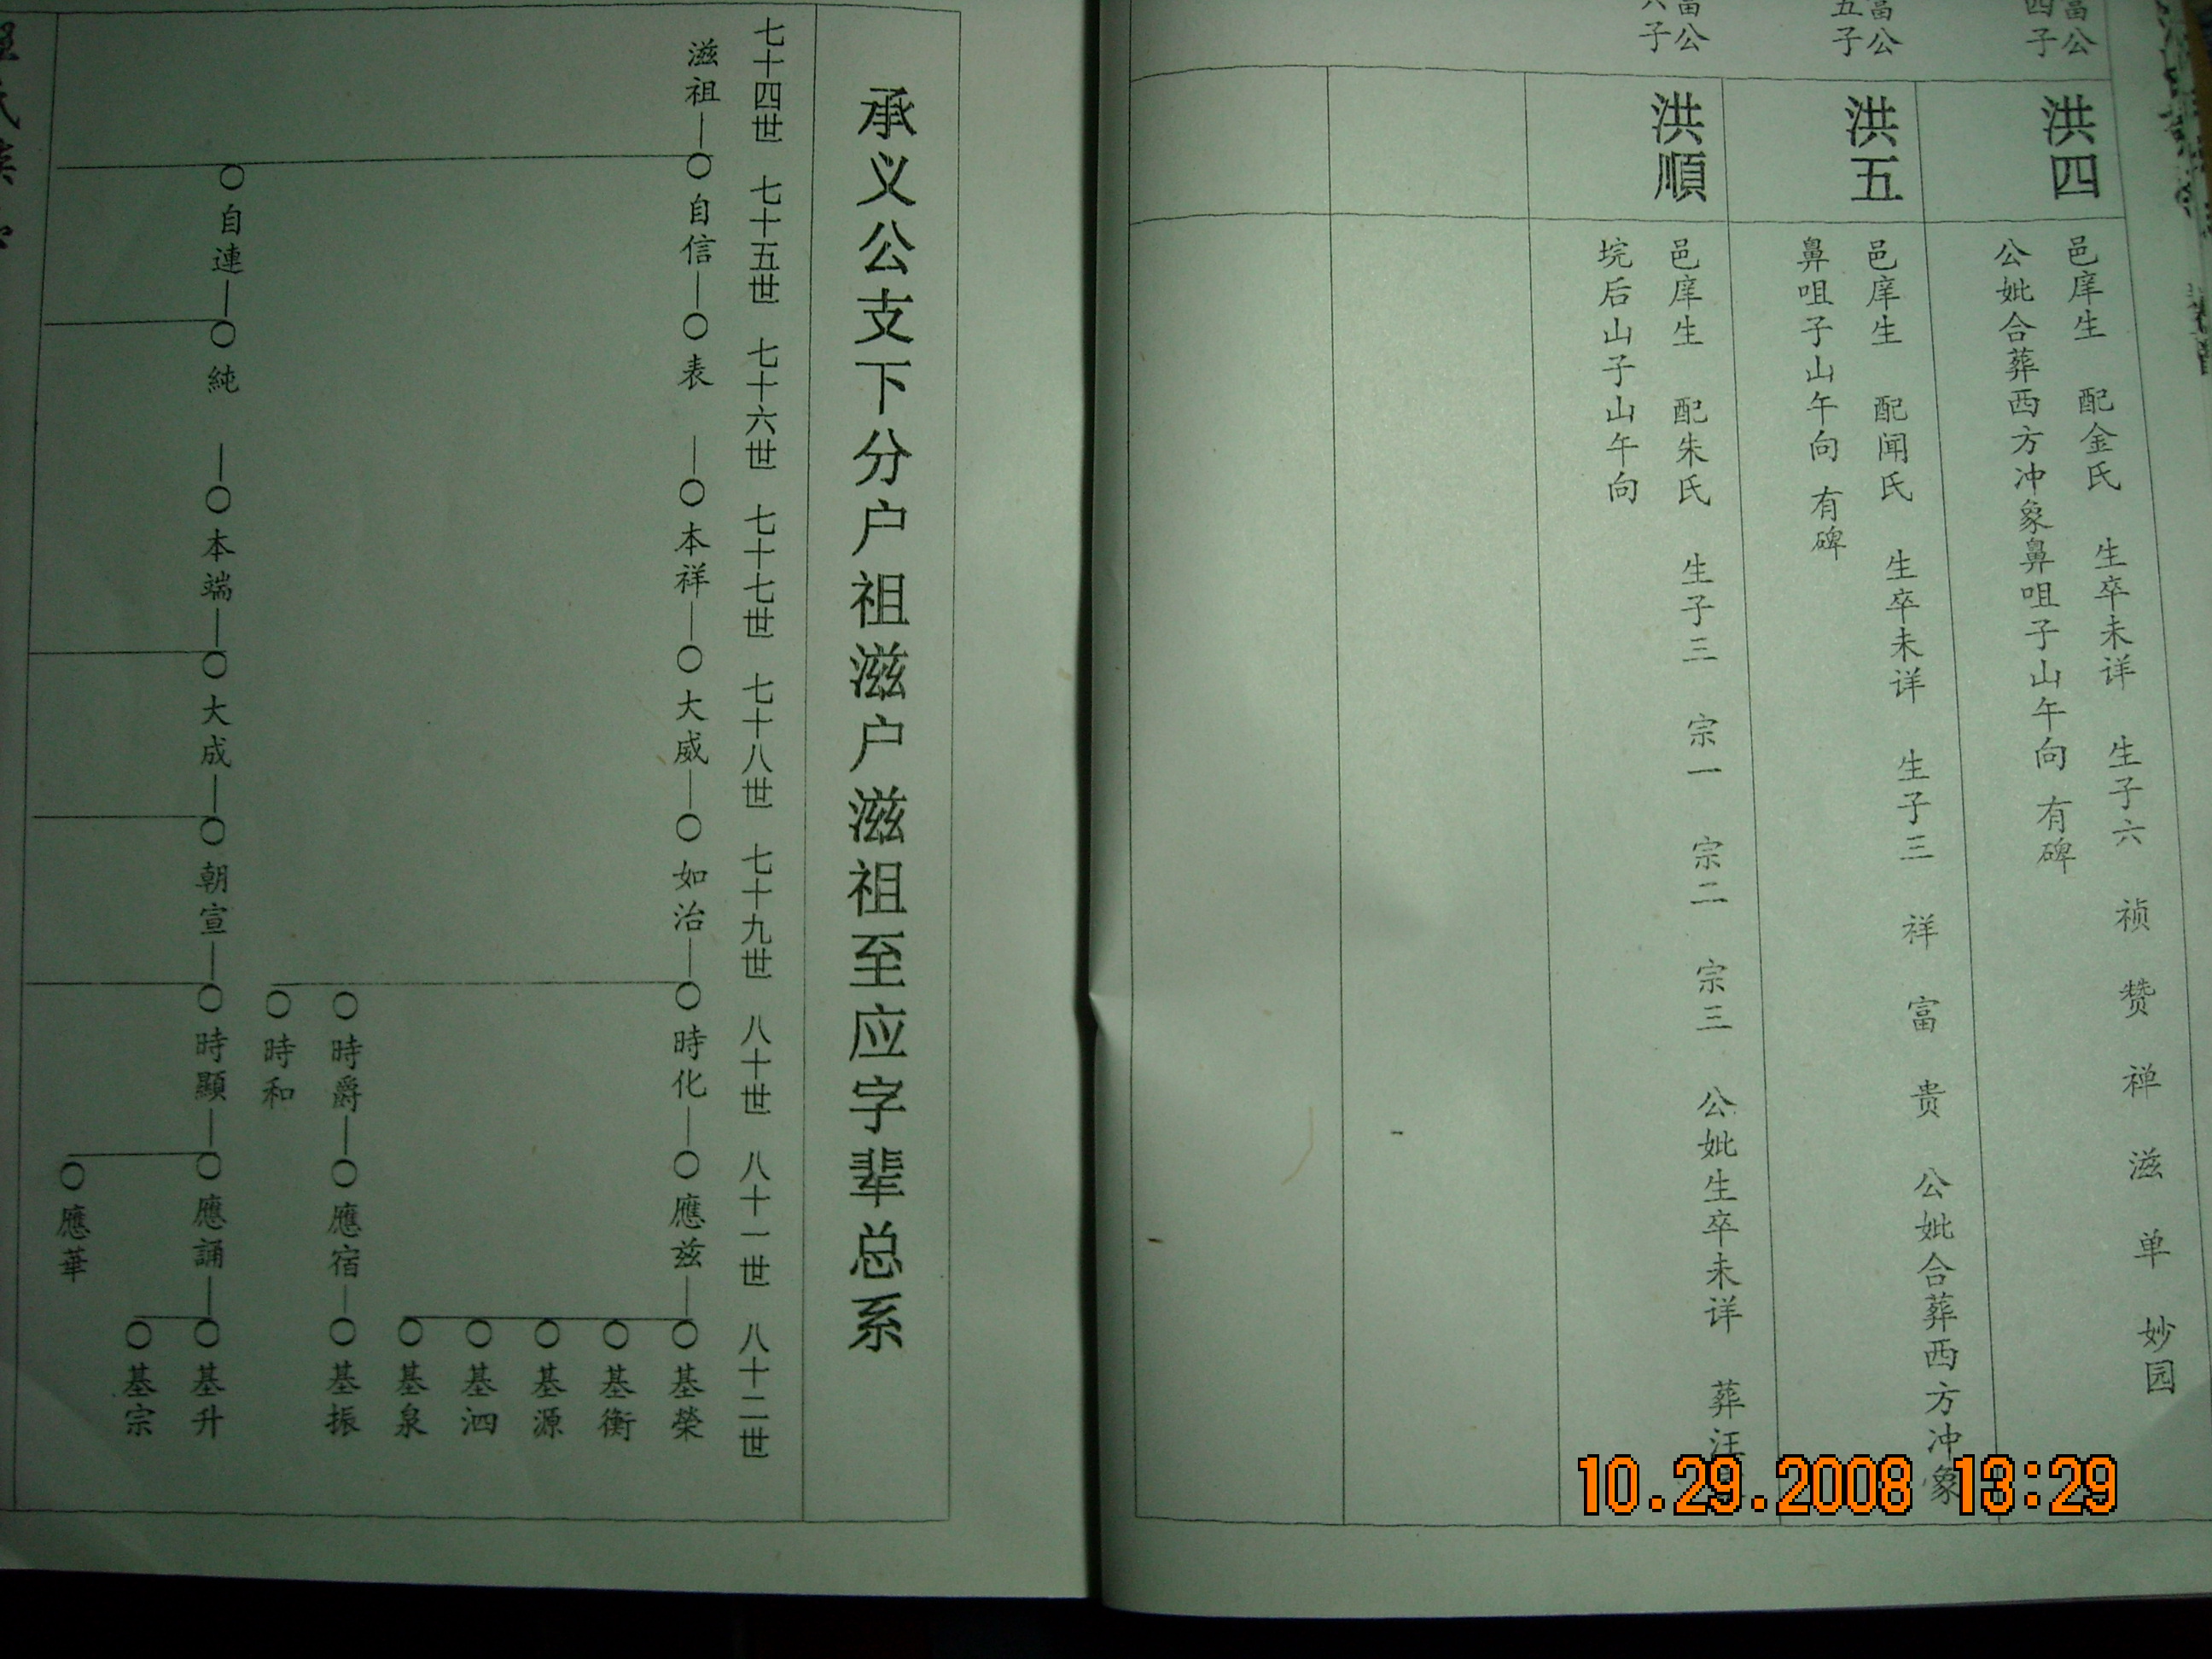 富公
四子
洪四
邑庠生 配金氏 生卒未详 生子六 祯 赞 禅 滋 单 妙园
公妣合葬西方冲象鼻咀子山午向 有碑
富公
五子
洪五
邑庠生 配闻氏 生卒未详 生子三 祥 富 贵 公妣合葬西方冲象
鼻咀子山午向 有碑
富公
六子
洪順
邑庠生 配朱氏 生子三 宗一 宗二 宗三 公妣生卒未详 葬汪
垸后山子山午向
承义公支下分户祖滋户滋祖至应字辈总系
七十四世 七十五世 七十六世 七十七世 七十八世 七十九世 八十世 八十一世 八十二世
滋祖 自信 表 本祥 大威 如治 時化 應兹 基榮
基衡
基源
基泗
基泉
時爵 應宿 基振
時和
自連 純 本端 大成 朝宣 時顯 應誦 基升
基宗
應華
10.29.2008 13:29